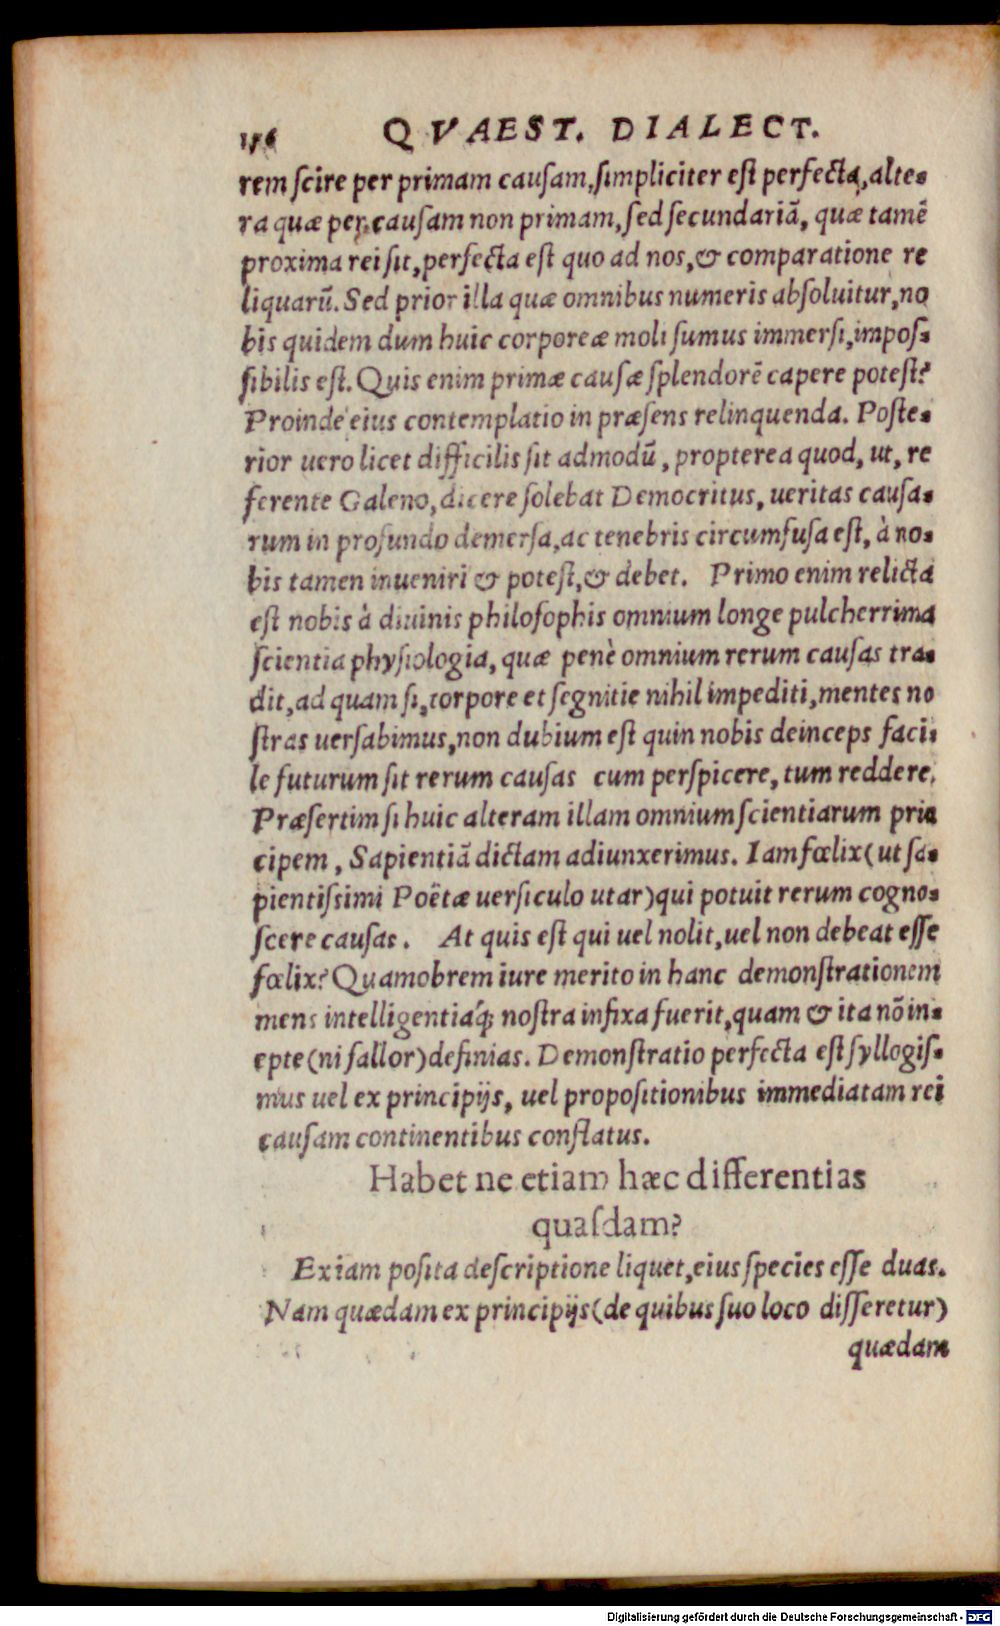 156 QVAEST. DIALECT.
rem scire per primam causam, simpliciter est perfecta, alte-
ra quæ per causam non primam, sed secundariā, quæ tamē
proxima rei sit, perfecta est quo ad nos, & comparatione re
liquarū. Sed prior illa quæ omnibus numeris absoluitur, no
bis quidem dum huic corporeæ moli sumus immersi, impos-
sibilis est. Quis enim primæ causæ splendorē capere potest?
Proinde eius contemplatio in præsens relinquenda. Poste-
rior uero licet difficilis sit admodū, propterea quod, ut, re
ferente Galeno, dicere solebat Democritus, ueritas causa-
rum in profundo demersa, ac tenebris circumfusa est, à no-
bis tamen inueniri & potest, & debet. Primo enim relicta
est nobis à diuinis philosophis omnium longe pulcherrima
scientia physiologia, quæ penè omnium rerum causas tra-
dit, ad quam si, torpore et segnitie nihil impediti, mentes no
stras uersabimus, non dubium est quin nobis deinceps faci-
le futurum sit rerum causas cum perspicere, tum reddere,
Præsertim si huic alteram illam omnium scientiarum prin
cipem, Sapientiā dictam adiunxerimus. Iam fœlix (ut sa-
pientissimi Poëtæ uersiculo utar) qui potuit rerum cogno-
scere causas. At quis est qui uel nolit, uel non debeat esse
fœlix? Quamobrem iure merito in hanc demonstrationem
mens intelligentiáq; nostra infixa fuerit, quam & ita nō in-
epte (ni fallor) definias. Demonstratio perfecta est syllogis-
mus uel ex principijs, uel propositionibus immediatam rei
causam continentibus conflatus.
Habet ne etiam hæc differentias
quasdam?
Ex iam posita descriptione liquet, eius species esse duas.
Nam quædam ex principijs (de quibus suo loco disseretur)
quædam
Digitalisierung gefördert durch die Deutsche Forschungsgemeinschaft - DFG